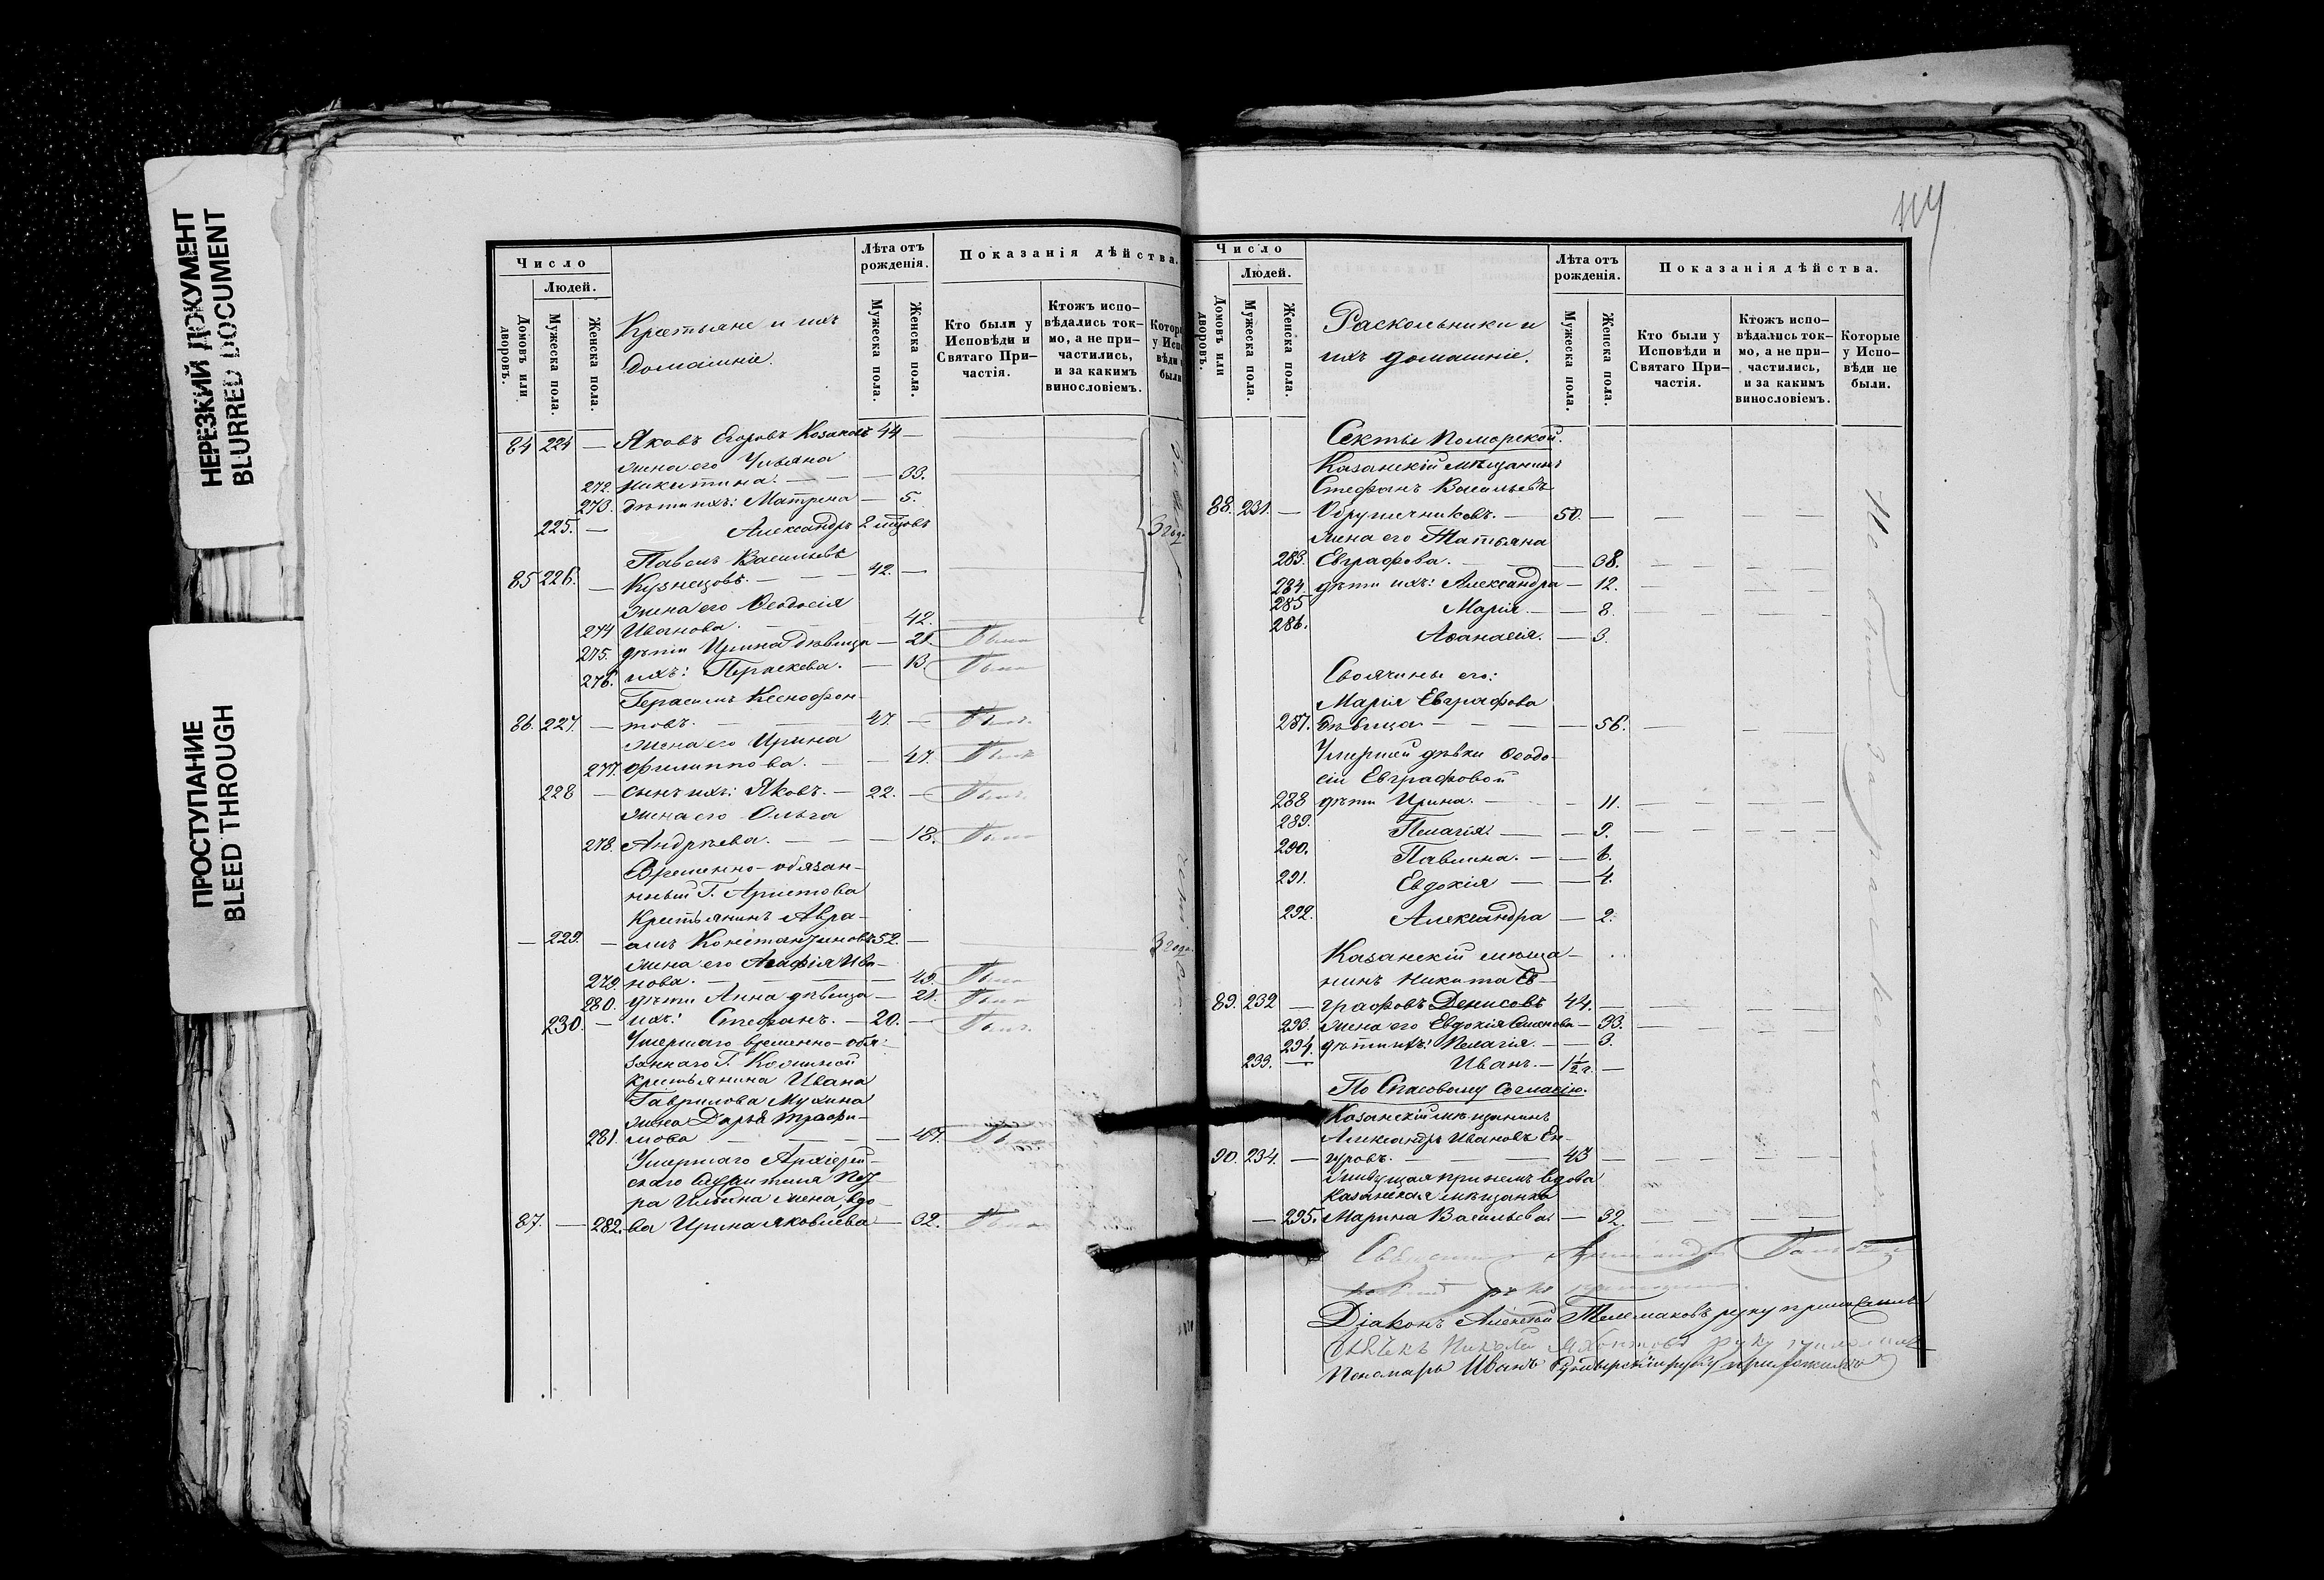 НЕРЕЗКИЙ ДОКУМЕНТ
BLURRED DOCUMENT
ПРОСТУПАНИЕ
BLEED THROUGH
Число
Людей.
Домовъ или дворовъ.
Мужеска пола.
Женска пола.
Крестьяне и ихъ
домашніе.
Лѣта отъ рожденія.
Мужеска пола.
Женска пола.
Показанія дѣйства.
Кто были у Исповѣди и Святаго При-частія.
Ктожъ испо-вѣдались ток-мо, а не при-частились, и за какимъ винословіемъ.
84 224 — Яковъ Егоровъ Козаковъ 44 —
жена его Ульяна
272. Никитина. — — 33.
273. дѣти ихъ: Матрена — 5.
225. — Александръ 2 мѣсцовъ
Павелъ Васильевъ
85 226. — Кузнецовъ. — — 42. —
жена его Ѳеодосія
274 Иванова. — 42.
275. дѣти Ирина дѣвица — 21. Была
276. ихъ: Пераскева. — 13. Была
Герасимъ Ксенофон-
86. 227. — товъ. — — 47. — Былъ.
жена его Ирина
277. Филиппова. — — 47. Была
228 — сынъ ихъ: Яковъ. — 22. — Былъ.
жена его Ольга
278. Андрѣева. — — — 18. Была
Временно-обязан-
нный Г. Аристова
Крестьянинъ Авра-
— 229. — амъ Константиновъ 52. — 3 года
жена его Агафія Ива-
279. нова. — — — 49. Была
280. дѣти Анна дѣвица — 21. Была
230. — ихъ: Стефанъ. — 20. — Былъ.
Умершаго временно-обя-
заннаго Г.
крестьянина Ивана
Гаврилова Мухина
жена Дарья Трофи-
281. мова — — — 47. Была
Умершаго Архіерей-
скаго служителя Пет-
ра Ильина жена, вдо-
87. — 282. ва Ирина Яковлева — 32. Была
114
Число
Людей.
Домовъ или дворовъ.
Мужеска пола.
Женска пола.
Раскольники и
ихъ домашніе.
Лѣта отъ рожденія.
Мужеска пола.
Женска пола.
Показанія дѣйства.
Кто были у Исповѣди и Святаго При-частія.
Ктожъ испо-вѣдались ток-мо, а не при-частились, и за какимъ винословіемъ.
Которые у Испо-вѣди не были.
Секты Поморской.
Казанскій мѣщанинъ
Стефанъ Васильевъ
88. 231. — Обручниковъ. — 50. — — — —
жена его Татьяна
283. Евграфова. — — 38. — — —
284. дѣти ихъ: Александра — 12. — — —
285 Марія. — — 8. — — —
286. Аѳанасія. — 3.
Своячины его:
Марія Евграфова
287. дѣвица — — — 56. — — —
Умершей дѣвки Ѳеодо-
сіи Евграфовой
288 дѣти Ирина. — — 11. — — —
289. Пелагія. — — 9. — — —
290. Павлина. — — 6.
291. Евдокія — — 4.
292. Александра — 2.
Казанскій мѣща-
нинъ Никита Ев-
89. 232 — графовъ Денисовъ 44. —
293. жена его Евдокія Семенова — 33. —
294. дѣти ихъ: Пелагія. — — 3.
233. — Иванъ. — 1½ г. —
По Спасовому согласію.
Казанскій мѣщанинъ
Александръ Ивановъ Ен-
90. 234. — гуровъ. — — — 43 — — — —
Живущая при немъ вдова
Казанская мѣщанка
— 295. Марина Васильева — 32. — — —
Не были за расколомъ
Священникъ
Діаконъ Алексѣй Телемаковъ руку приложилъ
Дьячекъ Николай руку приложилъ
Пономарь Иванъ руку приложилъ